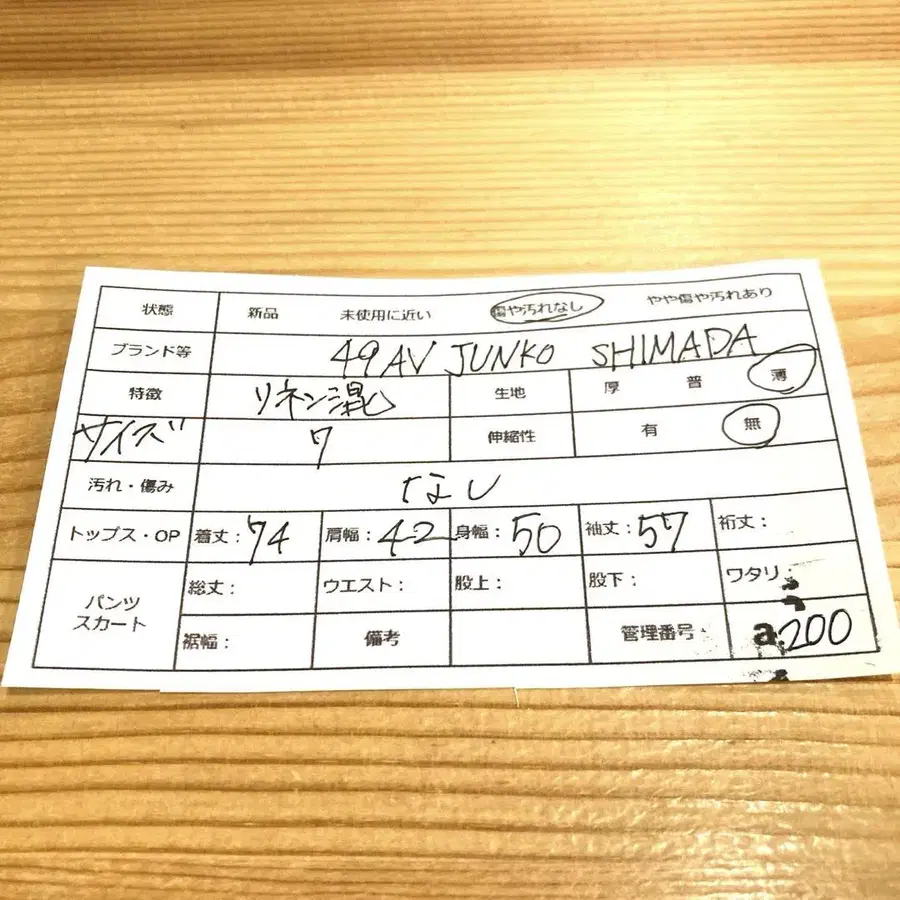 状態 新品 未使用に近い 傷や汚れなし やや傷や汚れあり
ブランド等 49AV JUNKO SHIMADA
特徴 リネン混 生地 厚 普 薄
サイズ 7 伸縮性 有 無
汚れ・傷み なし
トップス・OP 着丈：74 肩幅：42 身幅：50 袖丈：57 裄丈：
パンツ スカート 総丈： ウエスト： 股上： 股下： ワタリ：
裾幅： 備考 管理番号 a.200